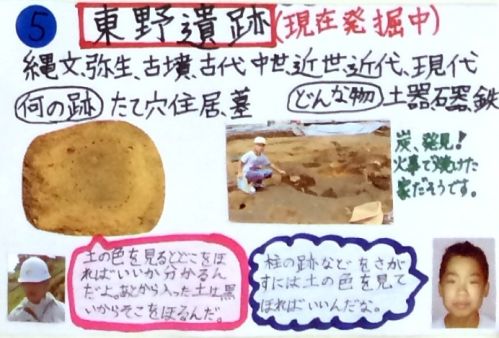 5 東野遺跡(現在発掘中)
縄文、弥生、古墳、古代 中世、近世、近代、現代
何の跡 たて穴住居、墓 どんな物 土器、石器、鉄
炭、発見!
火事で焼けた
家だそうです。
土の色を見るとどこをほ
ればいいか分かるん
だよ。あとから入った土は黒
いからそこをほるんだ。
柱の跡などをさが
すには土の色を見て
ほればいいんだな。